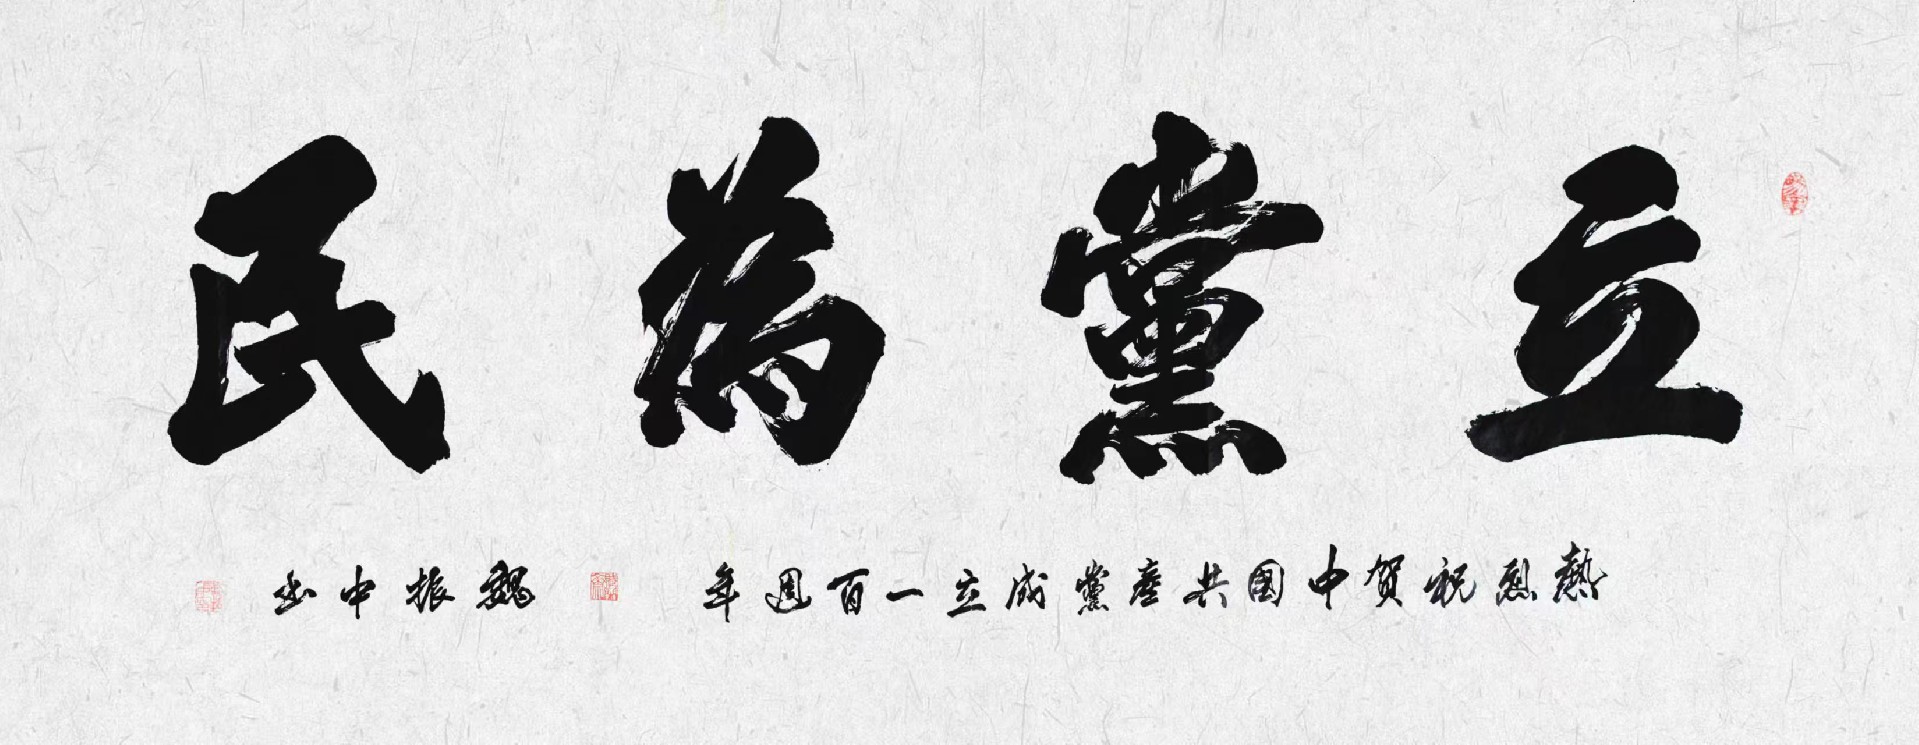 立黨為民
熱烈祝賀中國共產黨成立一百週年
魏振中書